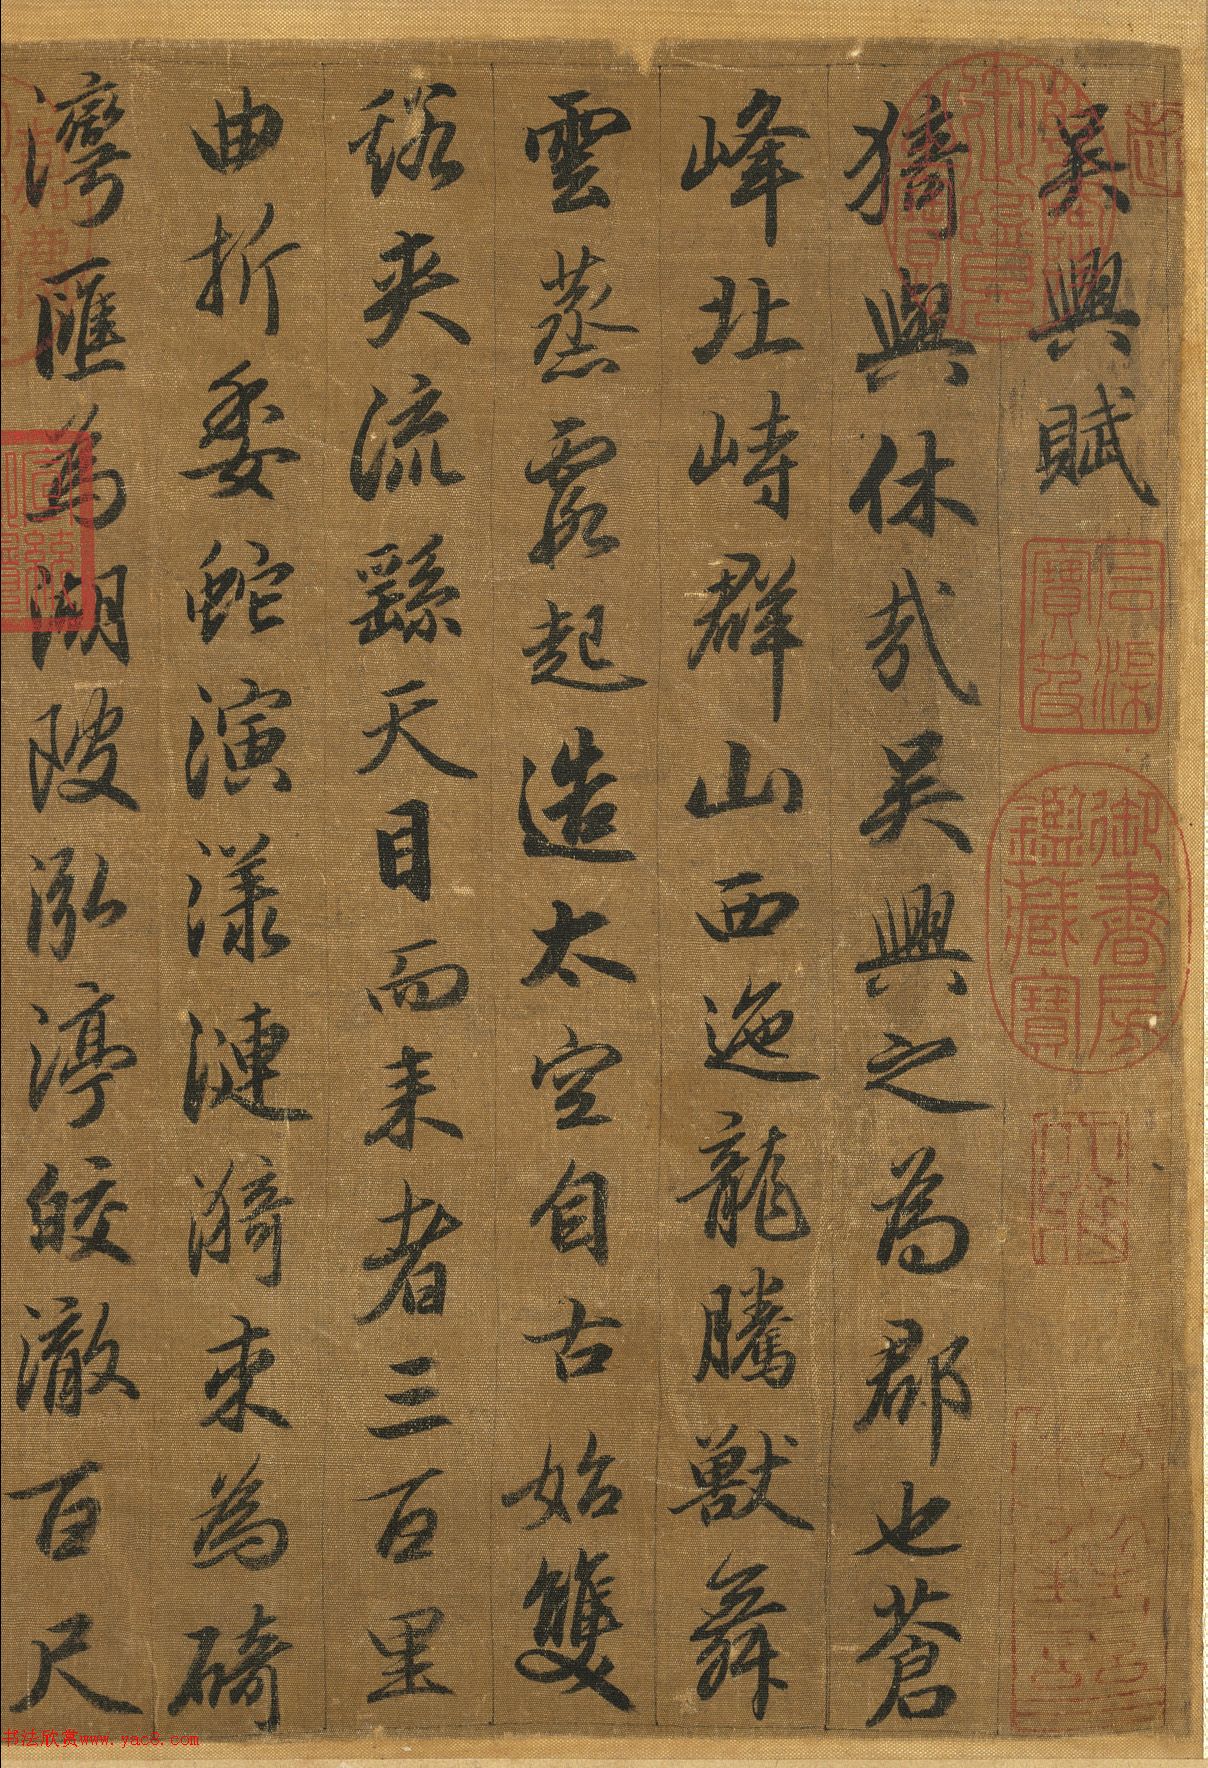 吳興賦
猗與休哉吳興之為郡也蒼
峰北峙群山西迤龍騰獸舞
雲蒸霞起造太空自古始雙
谿夾流繇天目而來者三百里
曲折委蛇演漾漣漪來為碕
灣匯為湖陂泓渟皎澈百尺
御書房鑑藏寶
书法欣赏www.yac8.com